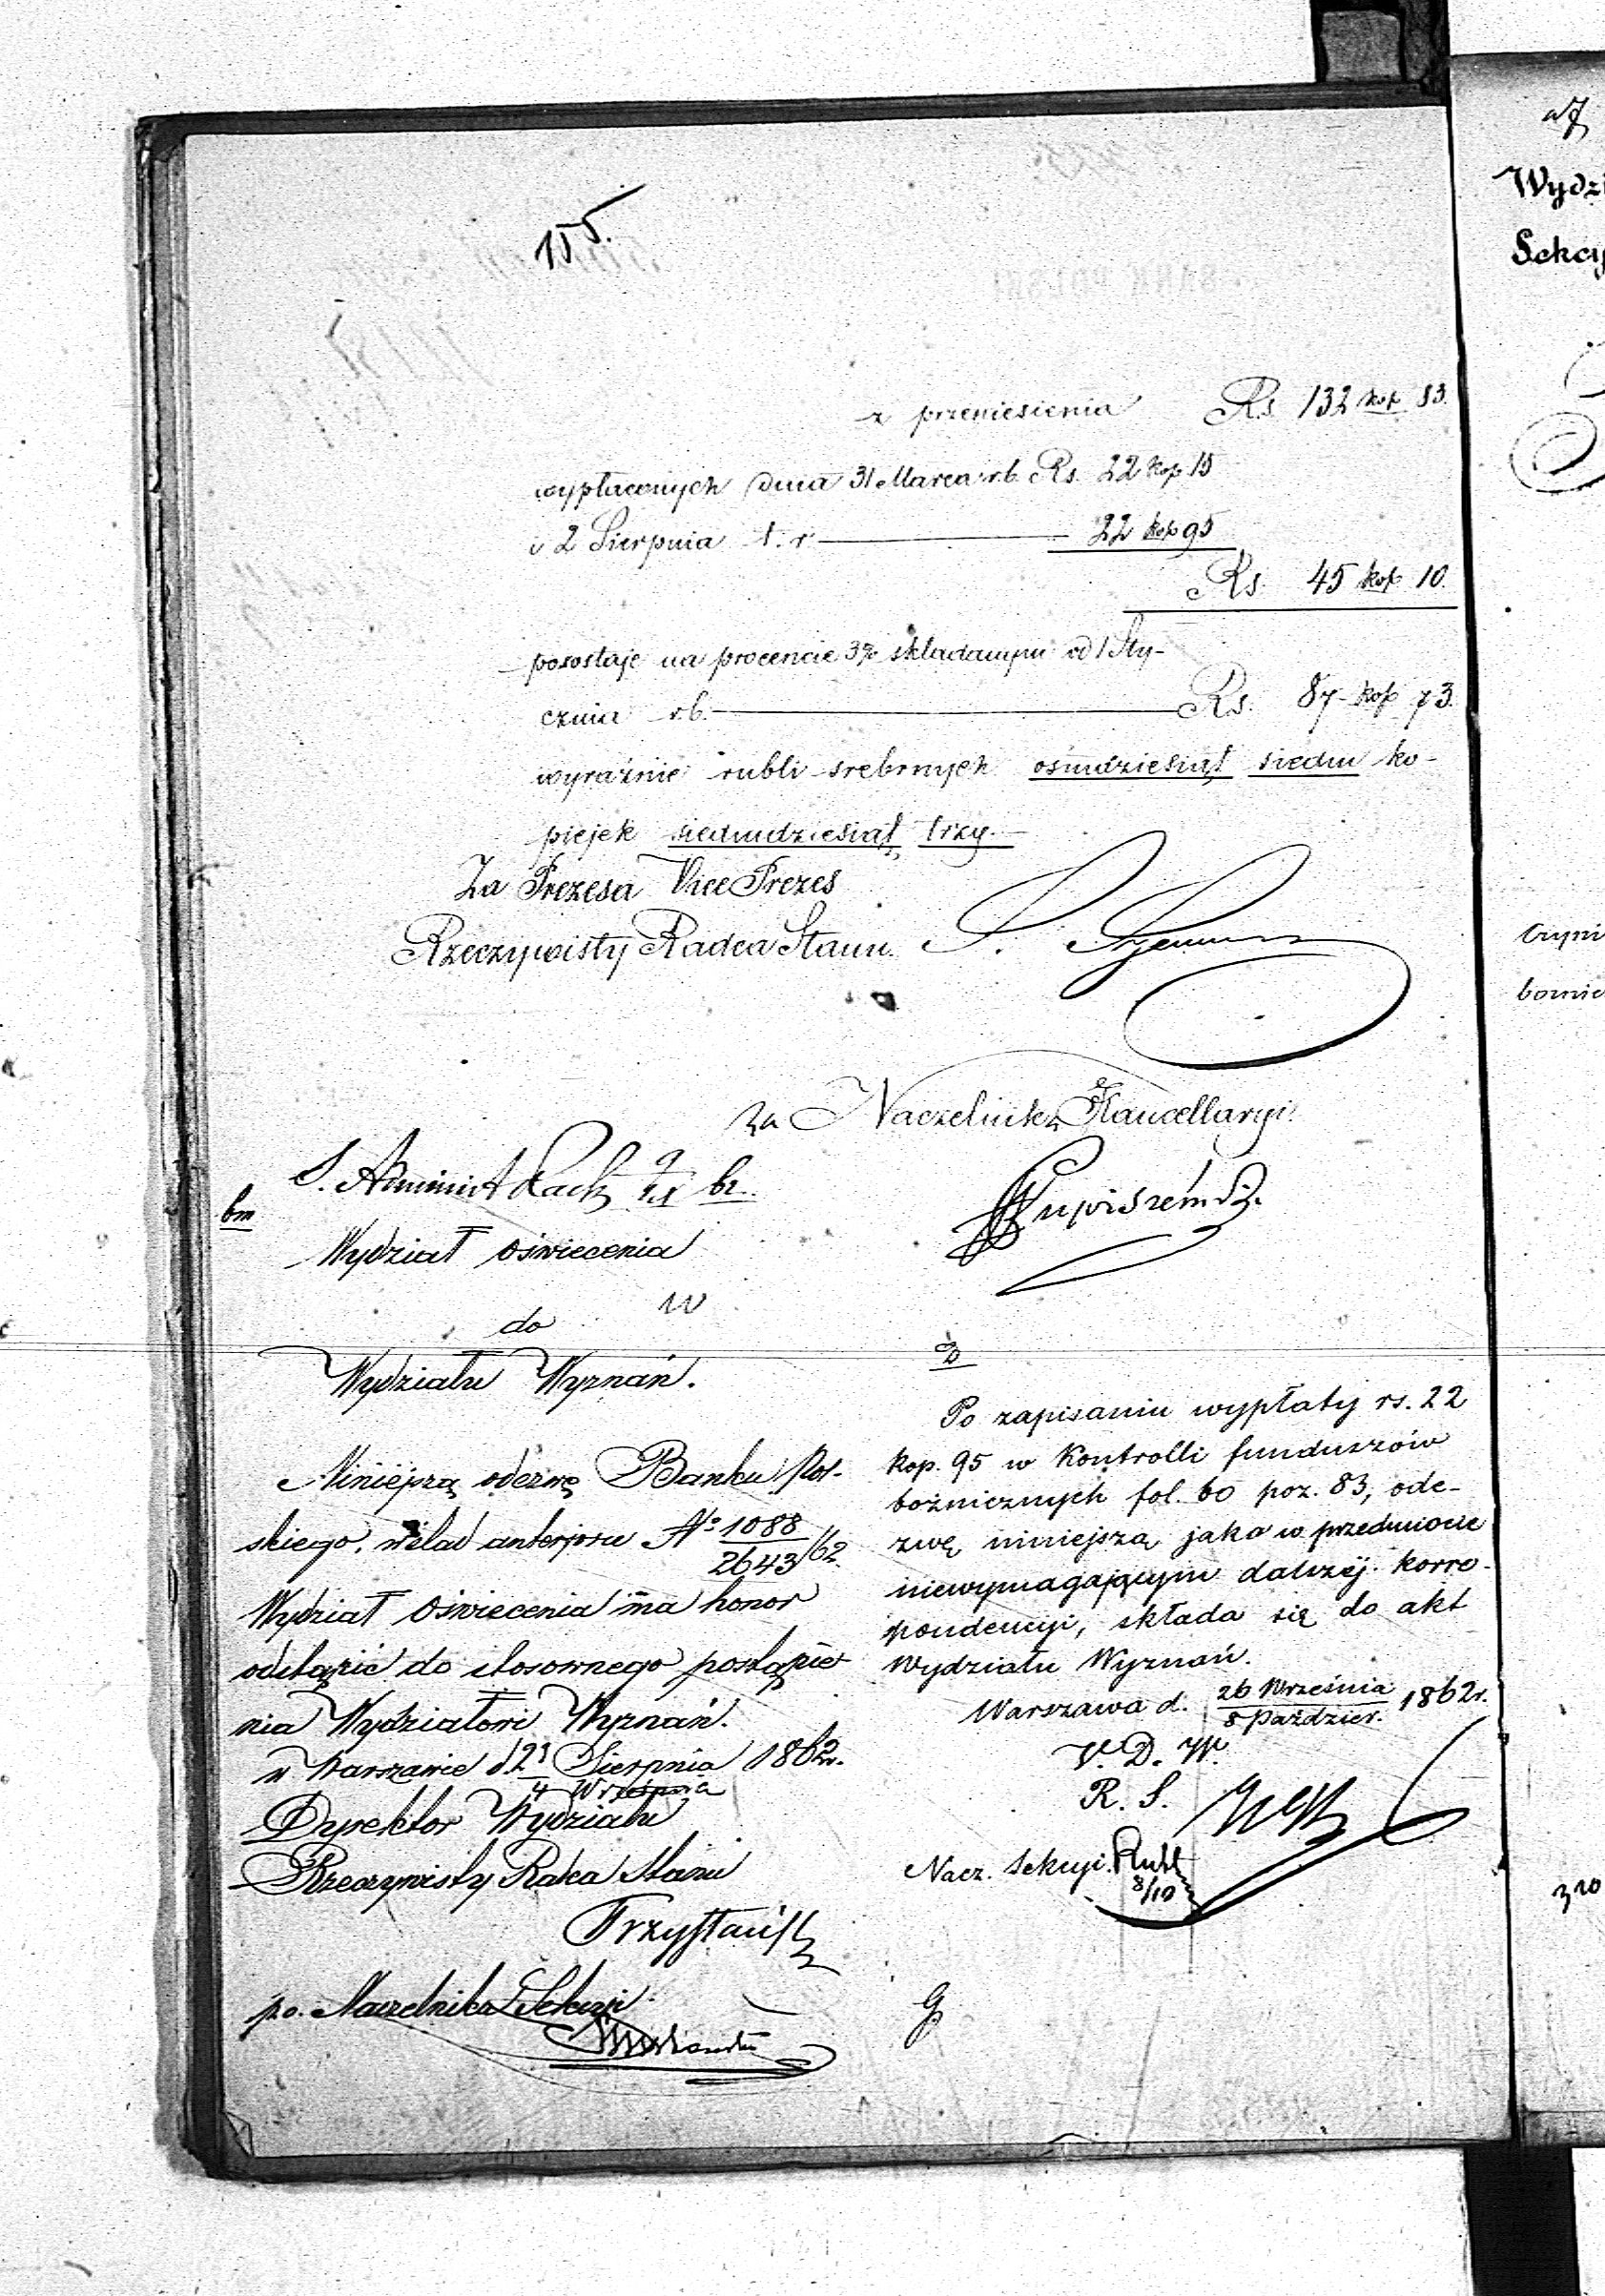 155.
z przeniesienia Rs. 132 kop 83.
wypłaconych dnia 31 Marca r.b. Rs. 22 kop 15
i 2 Sierpnia t. r. 22 kop 95
Rs. 45 kop 10.
pozostaje na procencie 3% składanym od 1 Sty-
cznia r.b. Rs. 87 kop 73.
wyraźnie rubli srebrnych osmdziesiąt siedm ko-
piejek siedmdziesiąt trzy.
Za Prezesa Vice Prezes
Rzeczywisty Radca Stanu.
Za Naczelnika Kancellaryi.
bm
Wydział Oświecenia
do
Wydziału Wyznań.
Niniejszą odezwę Banku Pol-
skiego, w ślad anteriora No 1088/2643/62.
Wydział Oświecenia ma honor
odstąpić do stosownego postąpie-
nia Wydziałowi Wyznań.
w Warszawie d. 23 Sierpnia 1862 r.
4 Września
Dyrektor Wydziału
Rzeczywisty Radca Stanu
p.o. Naczelnika Sekcyi
D
Po zapisaniu wypłaty rs. 22
kop. 95 w Kontrolli funduszów
bożniczných fol. 60 poz. 83, ode-
zwę niniejszą jako w przedmiocie
niewymagającym dalszéj korre-
pondencyi, składa się do akt
Wydziału Wyznań.
Warszawa d. 26 Września 1862 r.
8 Paździer.
V. D. W.
R. S.
Nacz. Sekcyi.
8/10
Wydzi
Sekcy